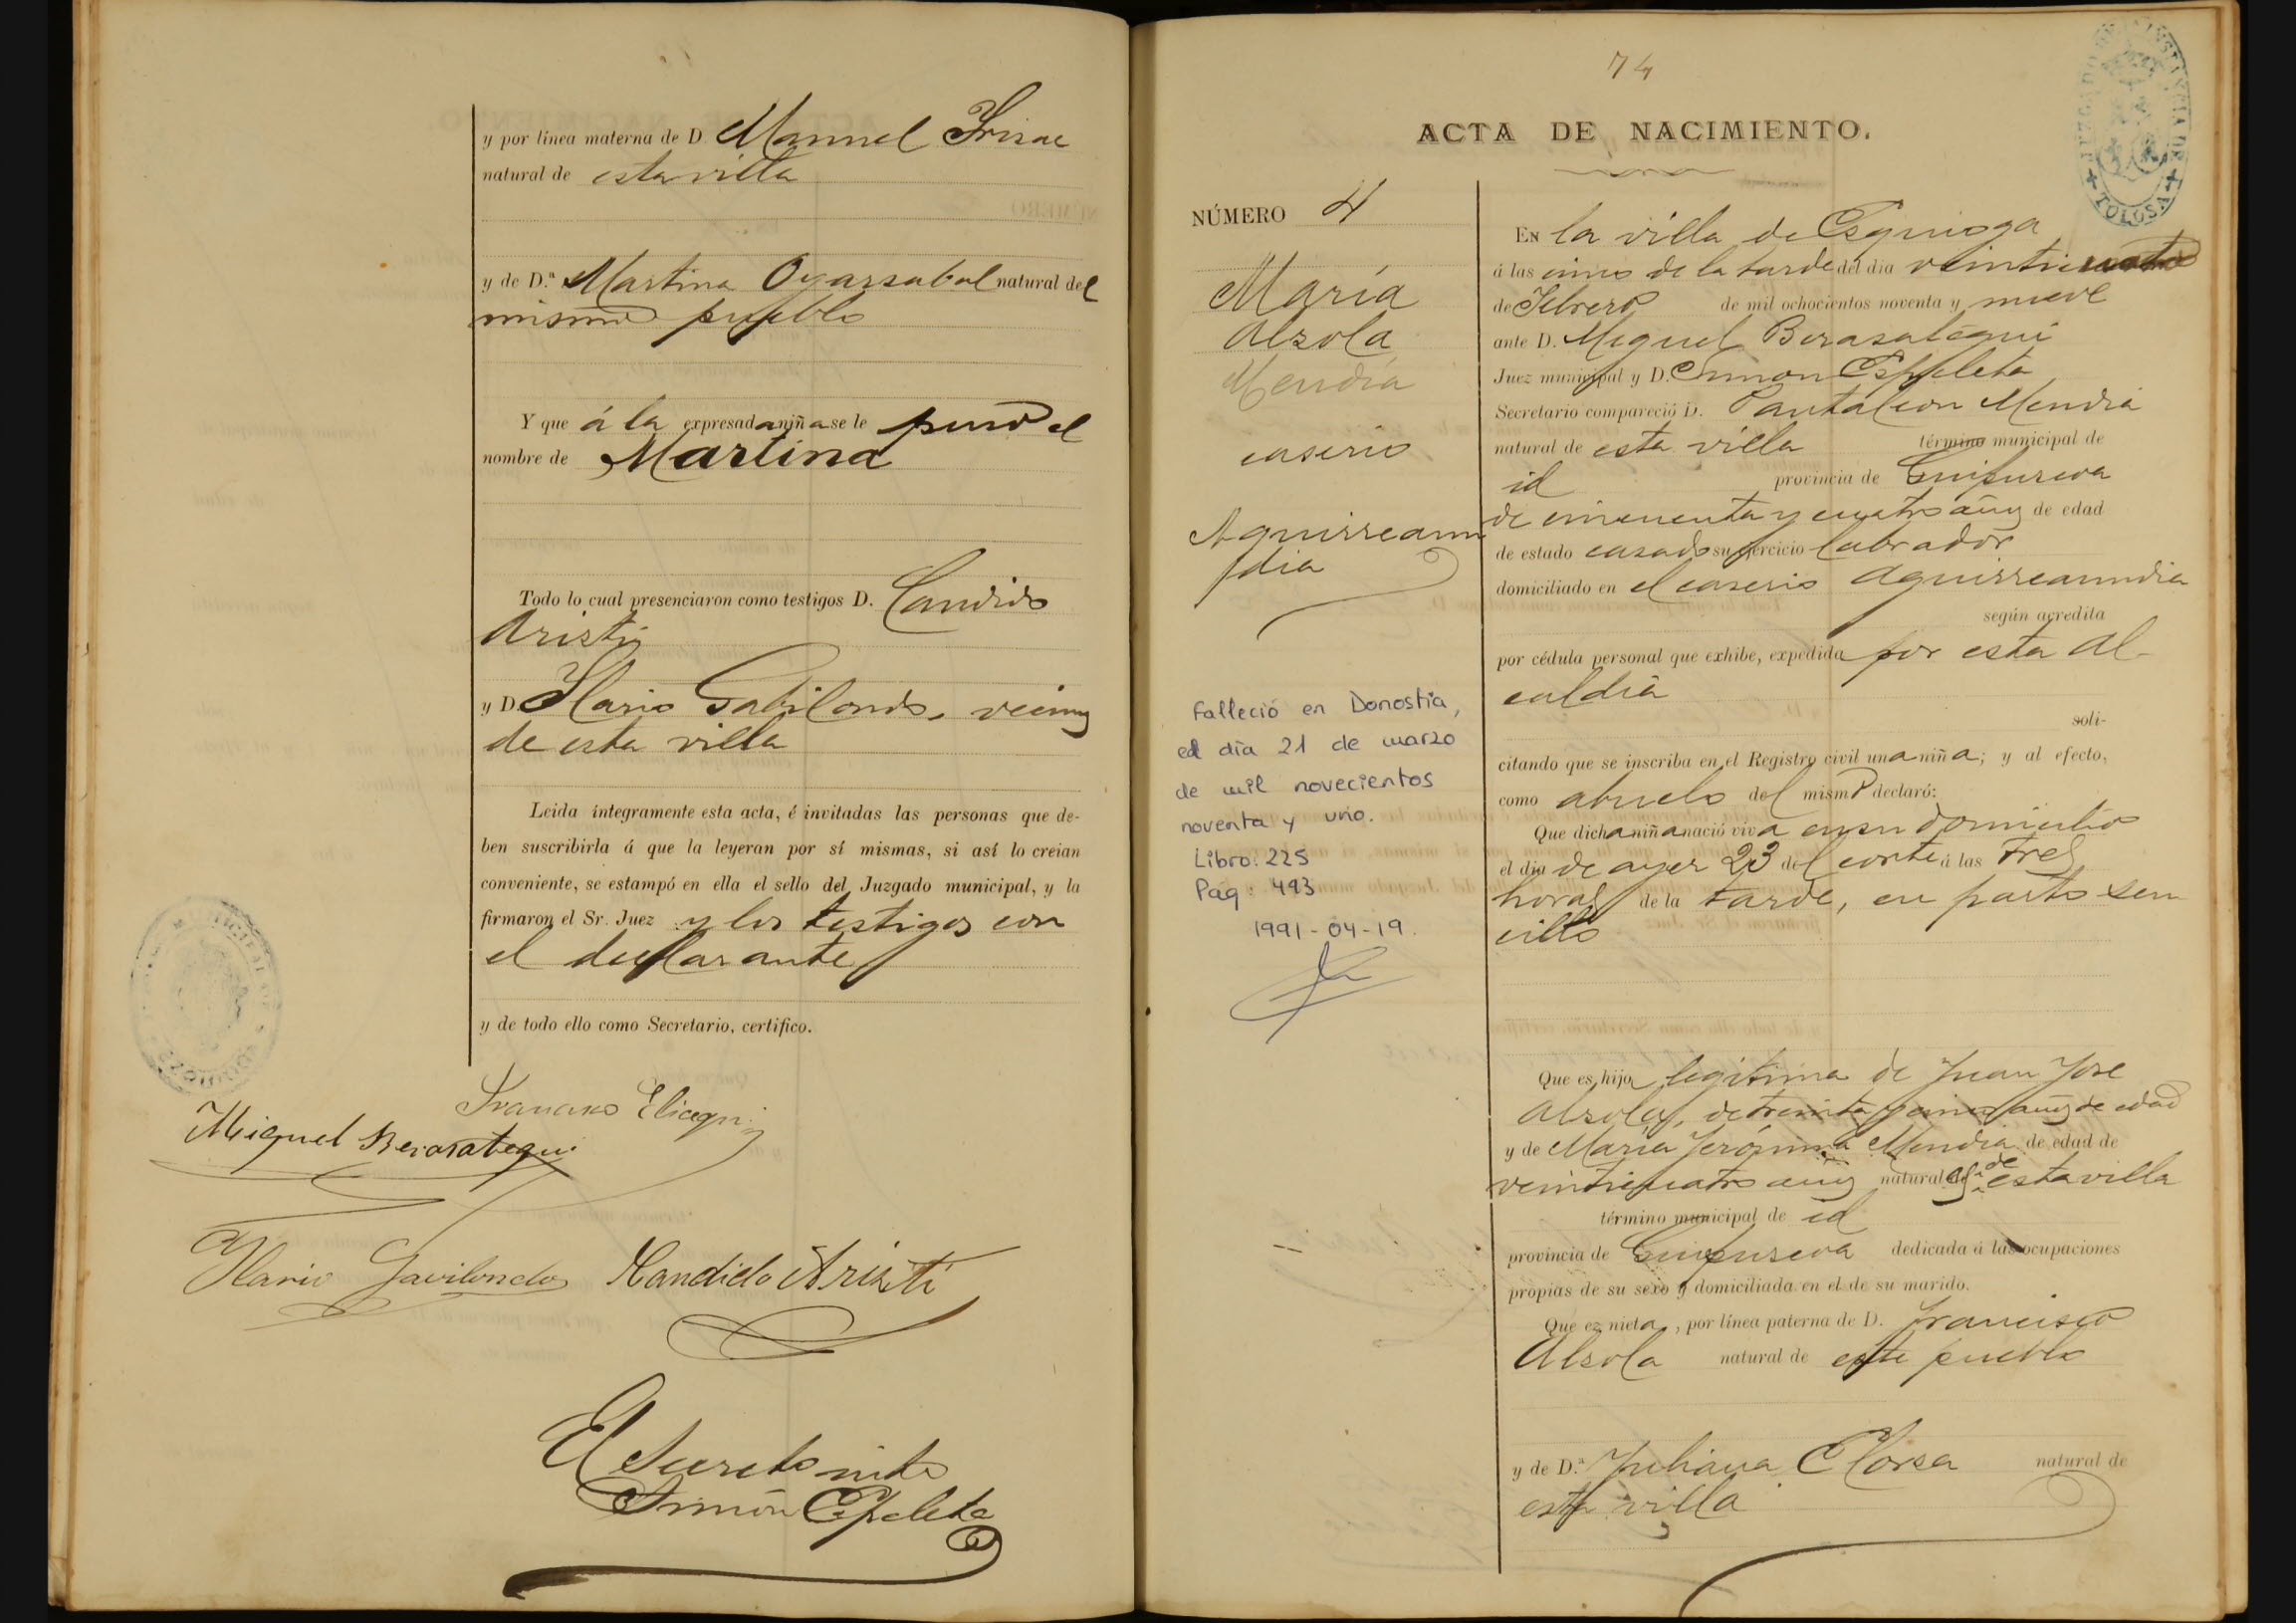 y por línea materna de D. Manuel Irizar
natural de esta villa
y de D.ª Martina Oyarzabal natural del
mismo pueblo
Y que á la expresada niña se le puso el
nombre de Martina
Todo lo cual presenciaron como testigos D. Candido
Aristi
y D. Ilario Gabilondo, vecinos
de esta villa
Leida íntegramente esta acta, é invitadas las personas que de-
ben suscribirla á que la leyeran por sí mismas, si así lo creian
conveniente, se estampó en ella el sello del Juzgado municipal, y la
firmaron el Sr. Juez y los testigos con
el declarante
y de todo ello como Secretario, certifico.
Francisco Elicegui
Miguel Berasategui
Ilario Gavilondo Candido Aristi
El Secretario
Simón Espeleta
74
ACTA DE NACIMIENTO.
TOLOSA
NÚMERO 4
María
Alzola
Mendia
caserio
Aguirreaun
dia
Falleció en Donostia,
el día 21 de marzo
de mil novecientos
noventa y uno.
Libro: 225
Pag: 493
1991-04-19.
En la villa de Ezquioga
á las cinco de la tarde del dia veinticuatro
de Febrero de mil ochocientos noventa y nueve
ante D. Miguel Berasategui
Juez municipal y D. Simon Espeleta
Secretario compareció D. Pantaleon Mendia
natural de esta villa término municipal de
id provincia de Guipuzcoa
de cincuenta y cuatro años de edad
de estado casado su ejercicio labrador
domiciliado en el caserio Aguirreaundia
según acredita
por cédula personal que exhibe, expedida por esta Al-
caldia
soli-
citando que se inscriba en el Registro civil una niña; y al efecto,
como abuelo del mismo declaró:
Que dicha niña nació viva en su domicilio
el dia de ayer 23 del corte á las tres
horas de la tarde, en parto sen
cillo
Que es hija legitima de Juan Jose
Alzola, de treinta y cinco años de edad
y de María Jerónima Mendia de edad de
veinticuatro años natural es de esta villa
término municipal de id
provincia de Guipuzcoa dedicada á las ocupaciones
propias de su sexo y domiciliada en el de su marido.
Que es nieta, por línea paterna de D. Francisco
Alzola natural de este pueblo
y de D.ª Juliana Elorza natural de
esta villa